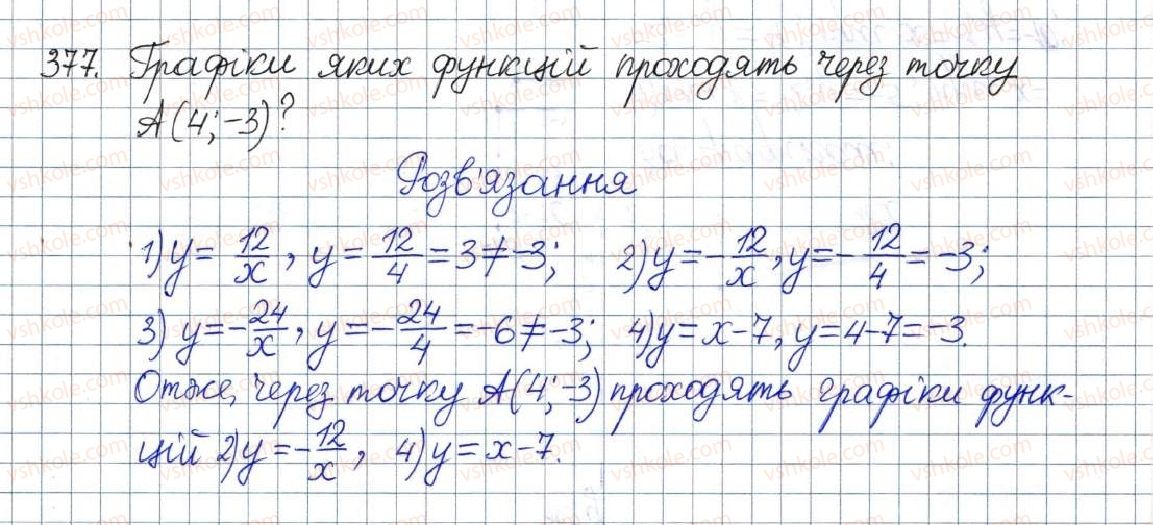 377. Графіки яких функцій проходять через точку
A(4; -3)?
Розв'язання
1) y = 12/x, y = 12/4 = 3 ≠ -3; 2) y = -12/x, y = -12/4 = -3;
3) y = -24/x, y = -24/4 = -6 ≠ -3; 4) y = x - 7, y = 4 - 7 = -3.
Отже, через точку A(4; -3) проходять графіки функ-
цій 2) y = -12/x, 4) y = x - 7.